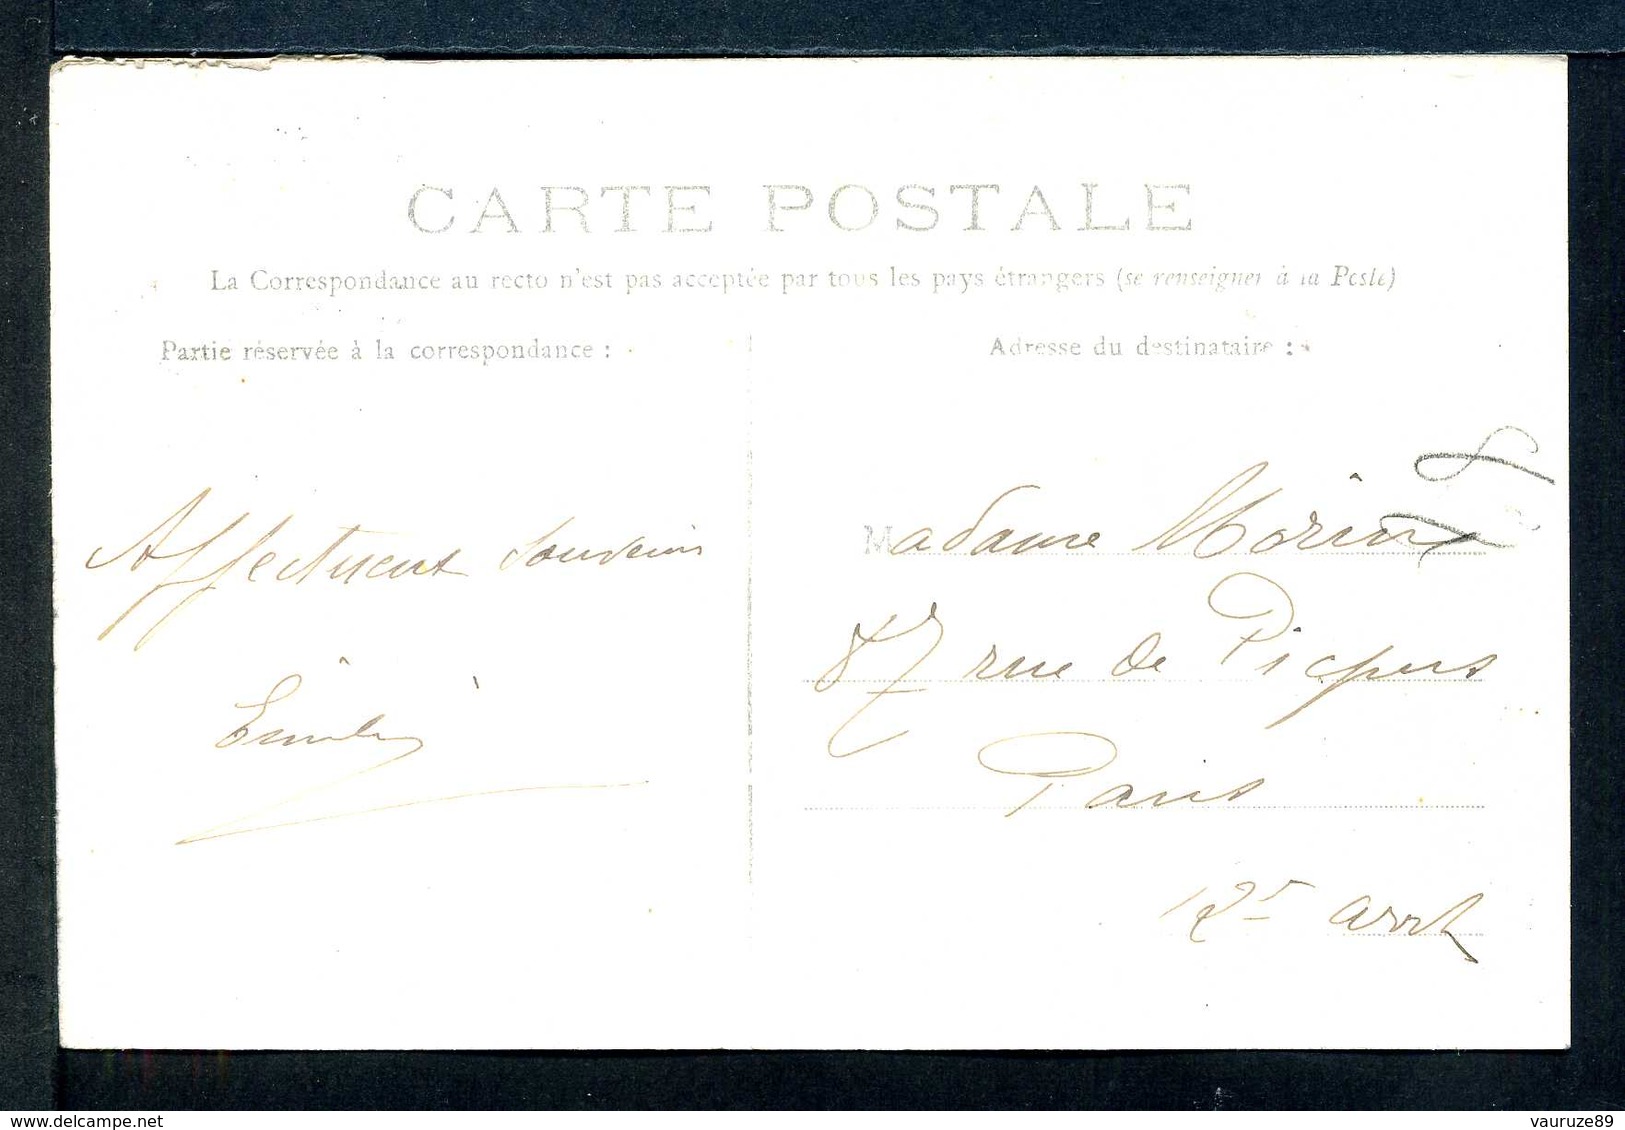 CARTE POSTALE
La Correspondance au recto n'est pas acceptée par tous les pays étrangers (se renseigner à la Poste)
Partie réservée à la correspondance :
Adresse du destinataire :
Affectueux Souvenir
Emile
Madame Morin
87 rue de Picpus
Paris
12e arrt
8
delcampe.net
vauruze89